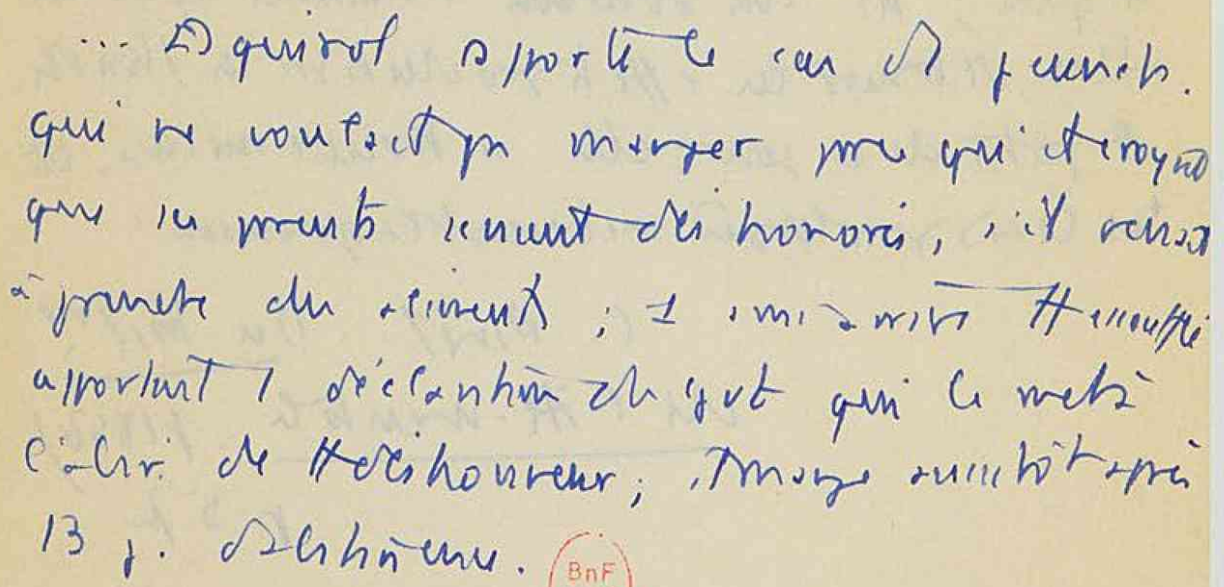 ... Esquirol apporte le cas de
qui ne voulait pas manger parce qu'il croyait
que ses parents seraient déshonorés, s'il
à prendre des aliments ; 1 ami arrive tt essoufflé
apportant 1 déclaration du gvt qui le met à
l'abri de tt déshonneur ; il mange aussitôt après
13 j. d'abstinence.
BnF